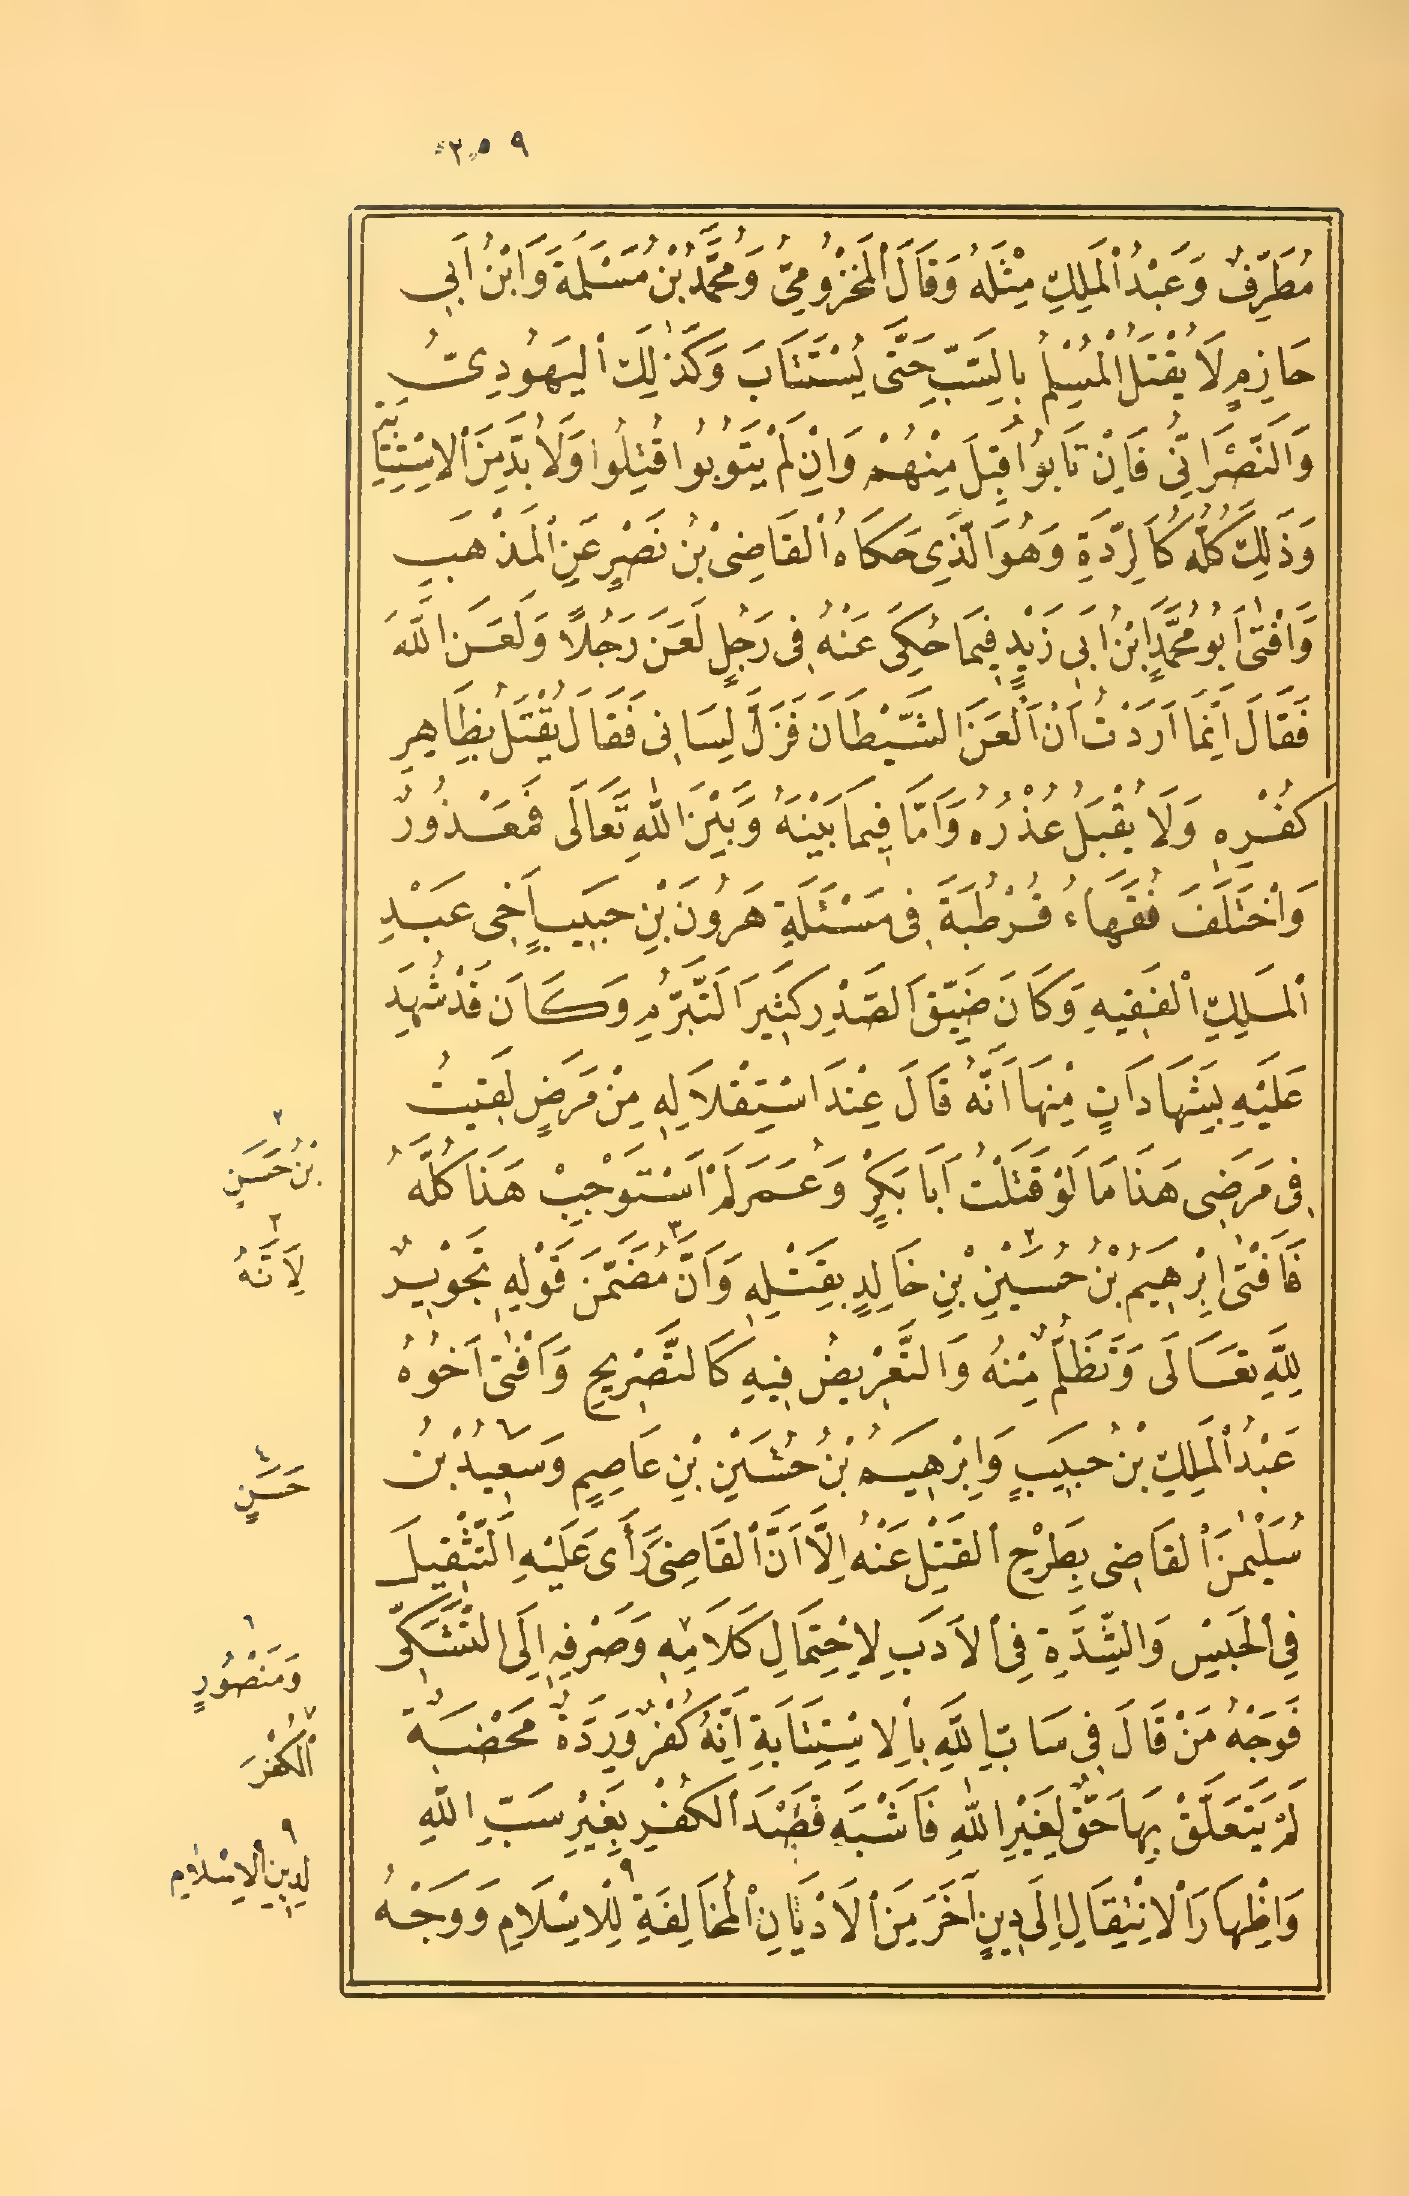 ٢٥٩
مُطَرِّفٌ وَعَبْدُ الْمَلِكِ مِثْلَهُ وَقَالَ الْمَخْزُومِيُّ وَمُحَمَّدُ بْنُ مَسْلَمَةَ وَابْنُ اَبِى
حَازِمٍ لَا يُقْتَلُ الْمُسْلِمُ بِالسَّبِّ حَتَّى يُسْتَتَابَ وَكَذٰلِكَ الْيَهُودِىُّ
وَالنَّصْرَانِىُّ فَاِنْ تَابُوا قُبِلَ مِنْهُمْ وَاِنْ لَمْ يَتُوبُوا قُتِلُوا وَلَا بُدَّ مِنَ الْاِسْتِتَابَةِ
وَذَلِكَ كُلُّهُ كَالرِّدَّةِ وَهُوَ الَّذِى حَكَاهُ الْقَاضِى بْنُ نَصْرٍ عَنِ الْمَذْهَبِ
وَاَفْتٰى اَبُو مُحَمَّدٍ ابْنُ اَبِى زَيْدٍ فِيمَا حُكِىَ عَنْهُ فِى رَجُلٍ لَعَنَ رَجُلًا وَلَعَنَ اللّٰهَ
فَقَالَ اِنَّمَا اَرَدْتُ اَنْ اَلْعَنَ الشَّيْطَانَ فَزَلَّ لِسَانِى فَقَالَ يُقْتَلُ بِظَاهِرِ
كُفْرِهِ وَلَا يُقْبَلُ عُذْرُهُ وَاَمَّا فِيمَا بَيْنَهُ وَبَيْنَ اللّٰهِ تَعَالَى فَمَعْذُورٌ
وَاخْتَلَفَ فُقَهَاءُ قُرْطُبَةَ فِى مَسْئَلَةِ هَرُونَ بْنِ حَبِيبٍ اَخِى عَبْدِ
الْمَلِكِ الْفَقِيهِ وَكَانَ ضَيِّقَ الصَّدْرِ كَثِيرَ التَّبَرُّمِ وَكَانَ قَدْ شُهِدَ
عَلَيْهِ بِشَهَادَاتٍ مِنْهَا اَنَّهُ قَالَ عِنْدَ اسْتِقْلَالِهِ مِنْ مَرَضٍ لَقِيتُ
فِى مَرَضِى هَذَا مَا لَوْ قَتَلْتُ اَبَا بَكْرٍ وَعُمَرَ لَمْ اَسْتَوْجِبْ هَذَا كُلَّهُ
فَاَفْتٰى اِبْرٰهِيمُ بْنُ حُسَيْنِ ٢ بْنِ خَالِدٍ بِقَتْلِهِ وَاَنَّ ٣ مُضَمَّنَ قَوْلِهِ تَجْوِيرٌ
لِلّٰهِ تَعَالَى وَتَظَلُّمٌ مِنْهُ وَالتَّعْرِيضُ فِيهِ كَالتَّصْرِيحِ وَاَفْتٰى اَخُوهُ
عَبْدُ الْمَلِكِ بْنُ حَبِيبٍ وَاِبْرٰهِيمُ بْنُ حُسَيْنِ بْنِ عَاصِمٍ وَسَعِيدُ بْنُ
سُلَيْمٰنَ الْقَاضِى بِطَرْحِ الْقَتْلِ عَنْهُ اِلَّا اَنَّ الْقَاضِىَ رَأَى عَلَيْهِ التَّثْقِيلَ
فِى الْحَبْسِ وَالشِّدَّةِ فِى الْاَدَبِ لِاحْتِمَالِ كَلَامِهِ وَصَرْفِهِ اِلَى التَّشَكِّى
فَوَجْهُ مَنْ قَالَ فِى سَابِّ اللّٰهِ بِالْاِسْتِتَابَةِ اَنَّهُ كُفْرٌ وَرِدَّةٌ مَحْضَةٌ
لَمْ يَتَعَلَّقْ بِهَا حَقٌّ لِغَيْرِ اللّٰهِ فَاَشْبَهَ قَصْدَ الْكُفْرِ بِغَيْرِ سَبِّ اللّٰهِ
وَاِظْهَارَ الْاِنْتِقَالِ اِلَى دِينٍ آخَرَ مِنَ الْاَدْيَانِ الْمُخَالِفَةِ ٩ لِلْاِسْلَامِ وَوَجْهُ
٢
بْنُ حَسَنٍ
٣
لِاَنَّهُ
٤
حَسَنٍ
٦
وَمَنْصُورٍ
٧
الْكُفْرَ
٩
لِدِينِ الْاِسْلَامِ